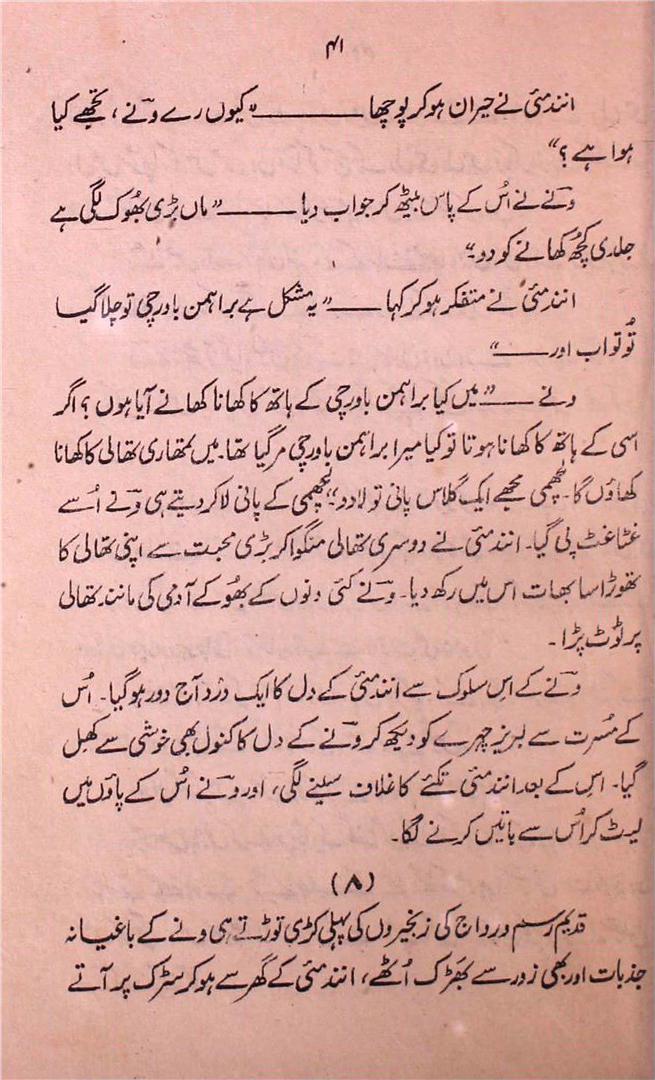 ۴۱
انندمئی نے حیران ہوکر پوچھا ——— ”کیوں رے ونے، تجھے کیا
ہوا ہے؟“
ونے نے اُس کے پاس بیٹھ کر جواب دیا ——— ”ماں بڑی بھُوک لگی ہے
جلدی کچھ کھانے کو دو۔“
انندمئی نے متفکر ہوکر کہا ——— ”یہ مشکل ہے براہمن باورچی تو چلا گیا
تُو تو اب اور ———“
ونے ——— ”میں کیا براہمن باورچی کے ہاتھ کا کھانا کھانے آیا ہوں؟ اگر
اسی کے ہاتھ کا کھانا ہوتا تو کیا میرا براہمن باورچی مر گیا تھا۔ میں تمھاری تھالی کا کھانا
کھاؤں گا۔ لچھمی مجھے ایک گلاس پانی تو لا دو“ لچھمی کے پانی لا کر دیتے ہی ونے اُسے
غٹاغٹ پی گیا۔ انندمئی نے دوسری تھالی منگوا کر بڑی محبت سے اپنی تھالی کا
تھوڑا سا بھات اس میں رکھ دیا۔ ونے کئی دنوں کے بھُوکے آدمی کی مانند تھالی
پر ٹوٹ پڑا۔
ونے کے اس سلوک سے انندمئی کے دل کا ایک درد آج دور ہوگیا۔ اُس
کے مُسرت سے لبریز چہرے کو دیکھ کر ونے کے دل کا کنول بھی خوشی سے کھِل
گیا۔ اس کے بعد انندمئی تکئے کا غلاف سینے لگی، اور ونے اُس کے پاؤں میں
لیٹ کر اُس سے باتیں کرنے لگا۔
(۸)
قدیم رسم ورداج کی زنجیروں کی پہلی کڑی توڑتے ہی ونے کے باغیانہ
جذبات اور بھی زور سے بھَڑک اُٹھے، انندمئی کے گھر سے ہوکر سڑک پر آتے